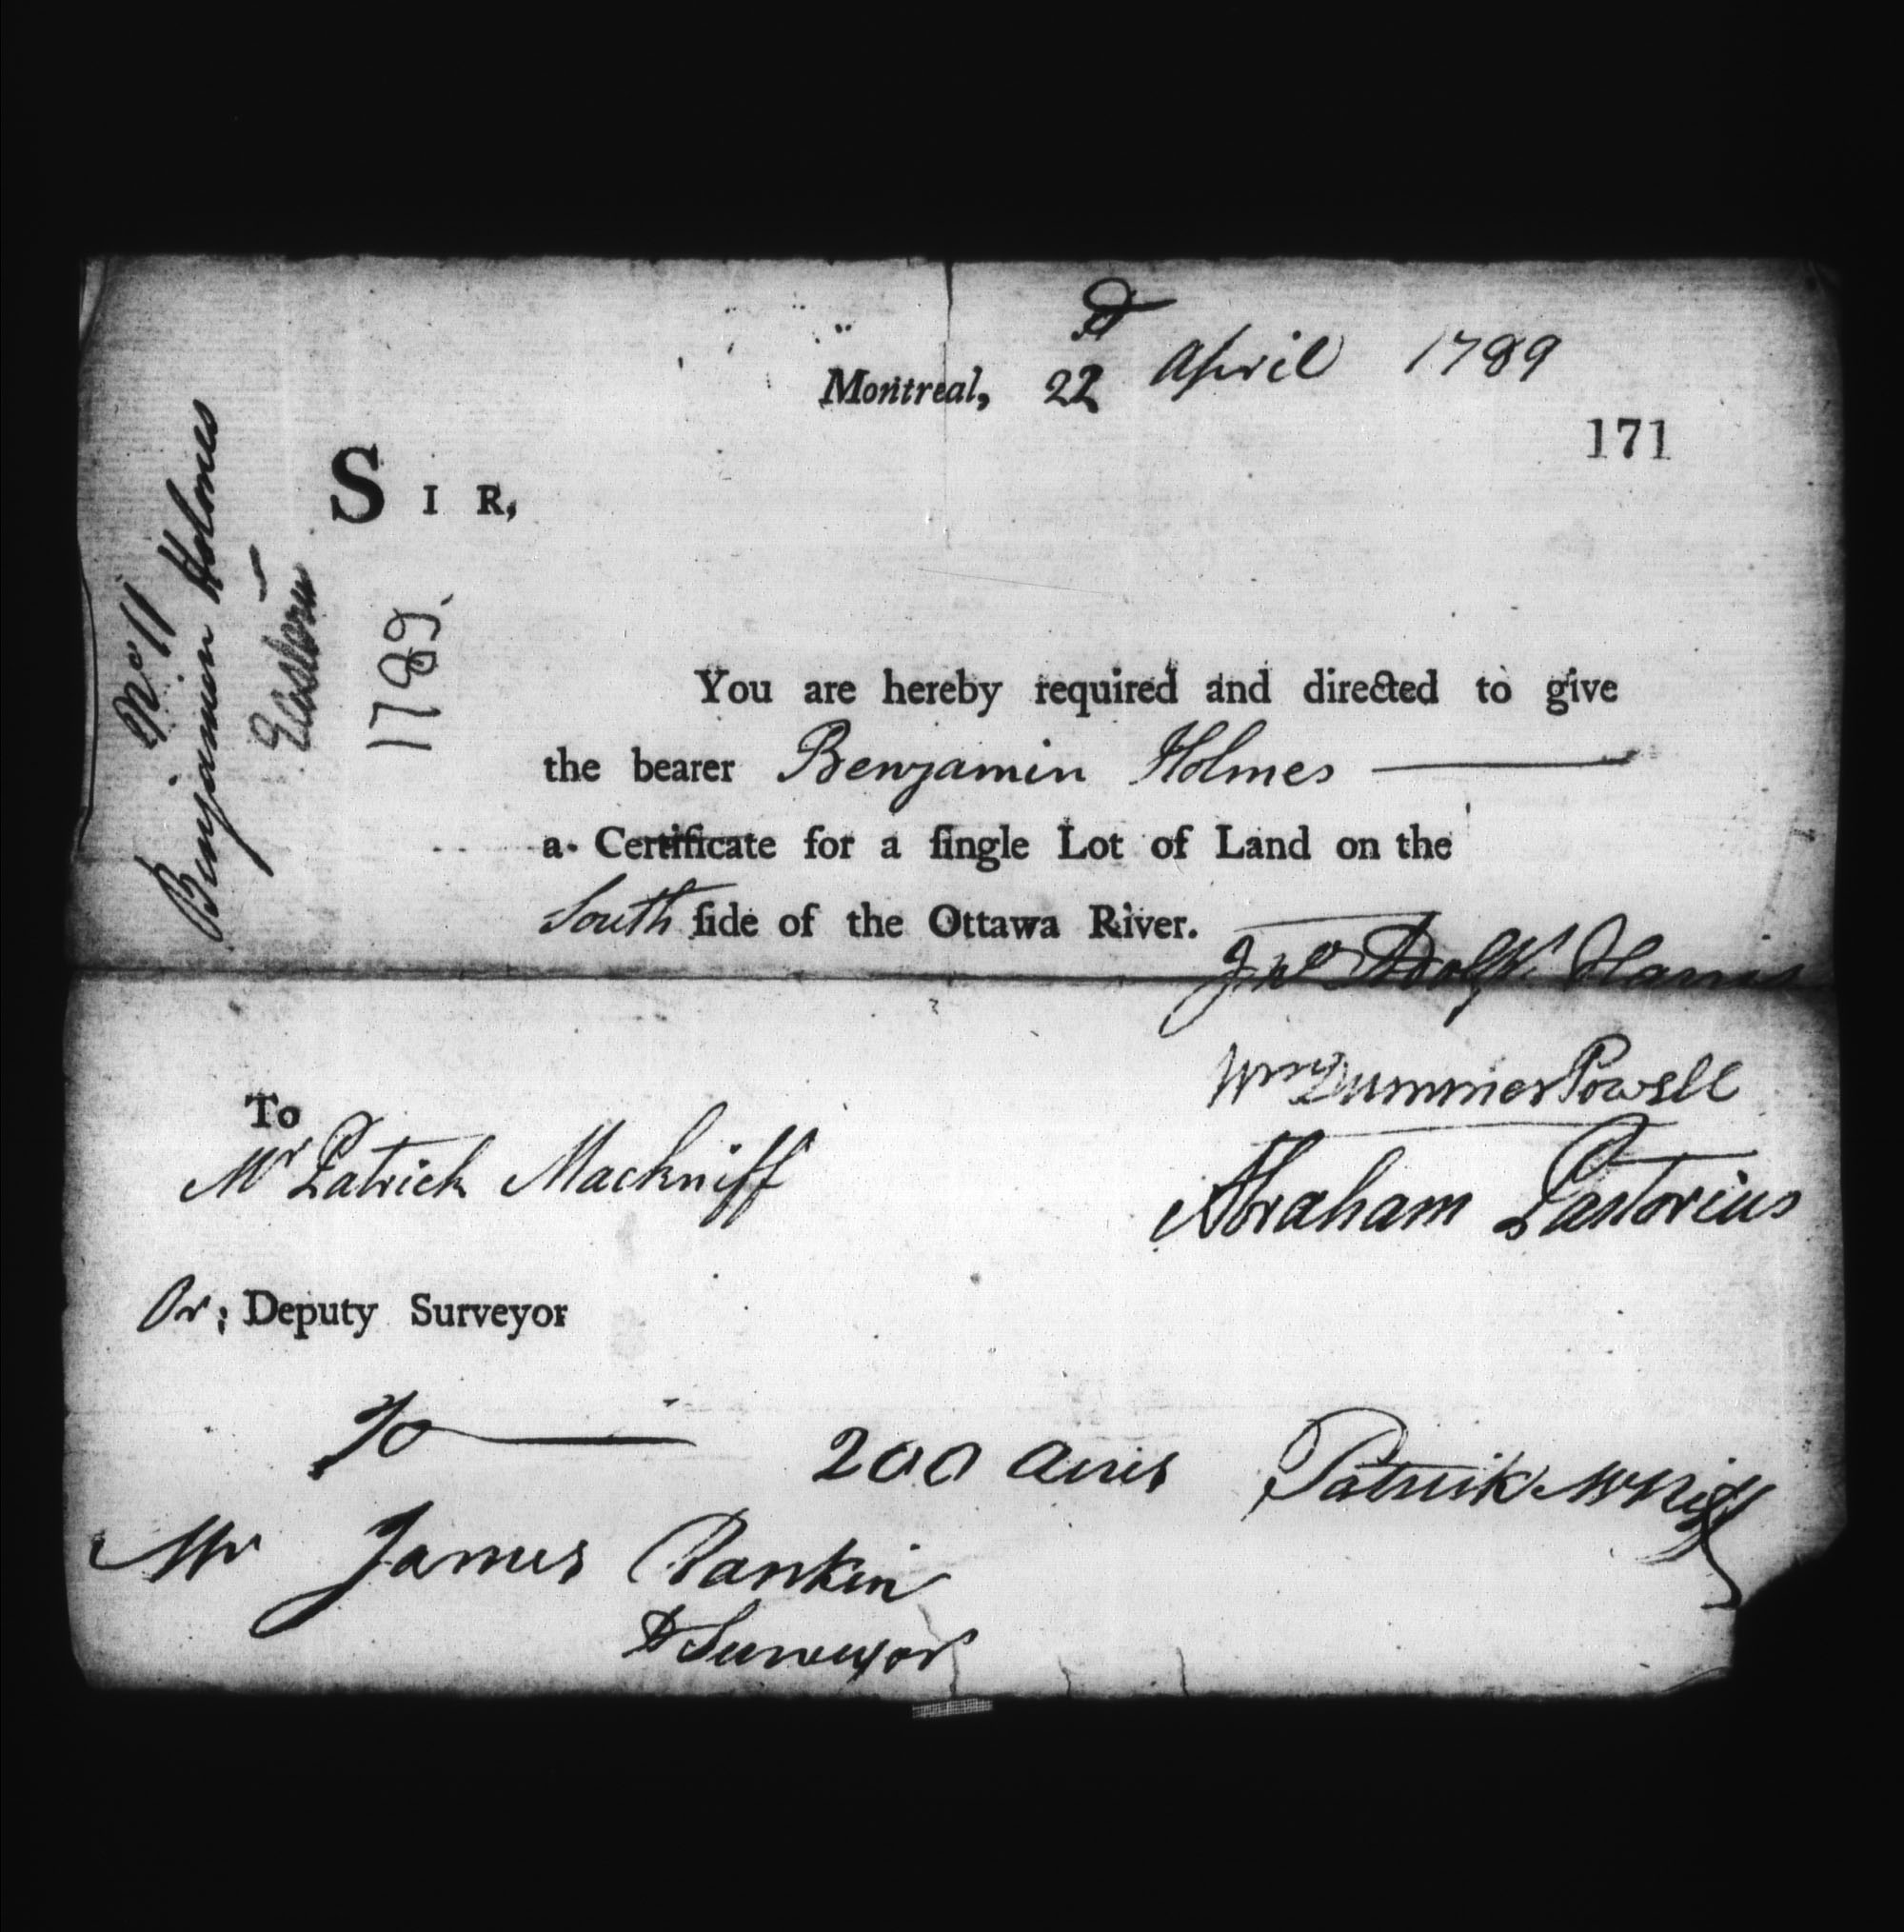 Montreal, 22d April 1789
171
No 11
Benjamin Holmes
Eastern
1789.
SIR,
You are hereby required and directed to give
the bearer Benjamin Holmes
a Certificate for a ſingle Lot of Land on the
South ſide of the Ottawa River.
Jno Adolps Harris
Wm Dummer Powell
Abraham Pastorius
To
Mr Patrick Mackniff
Or; Deputy Surveyor
To
200 Acres Patrick McNiff
Mr James Rankin
D Surveyor